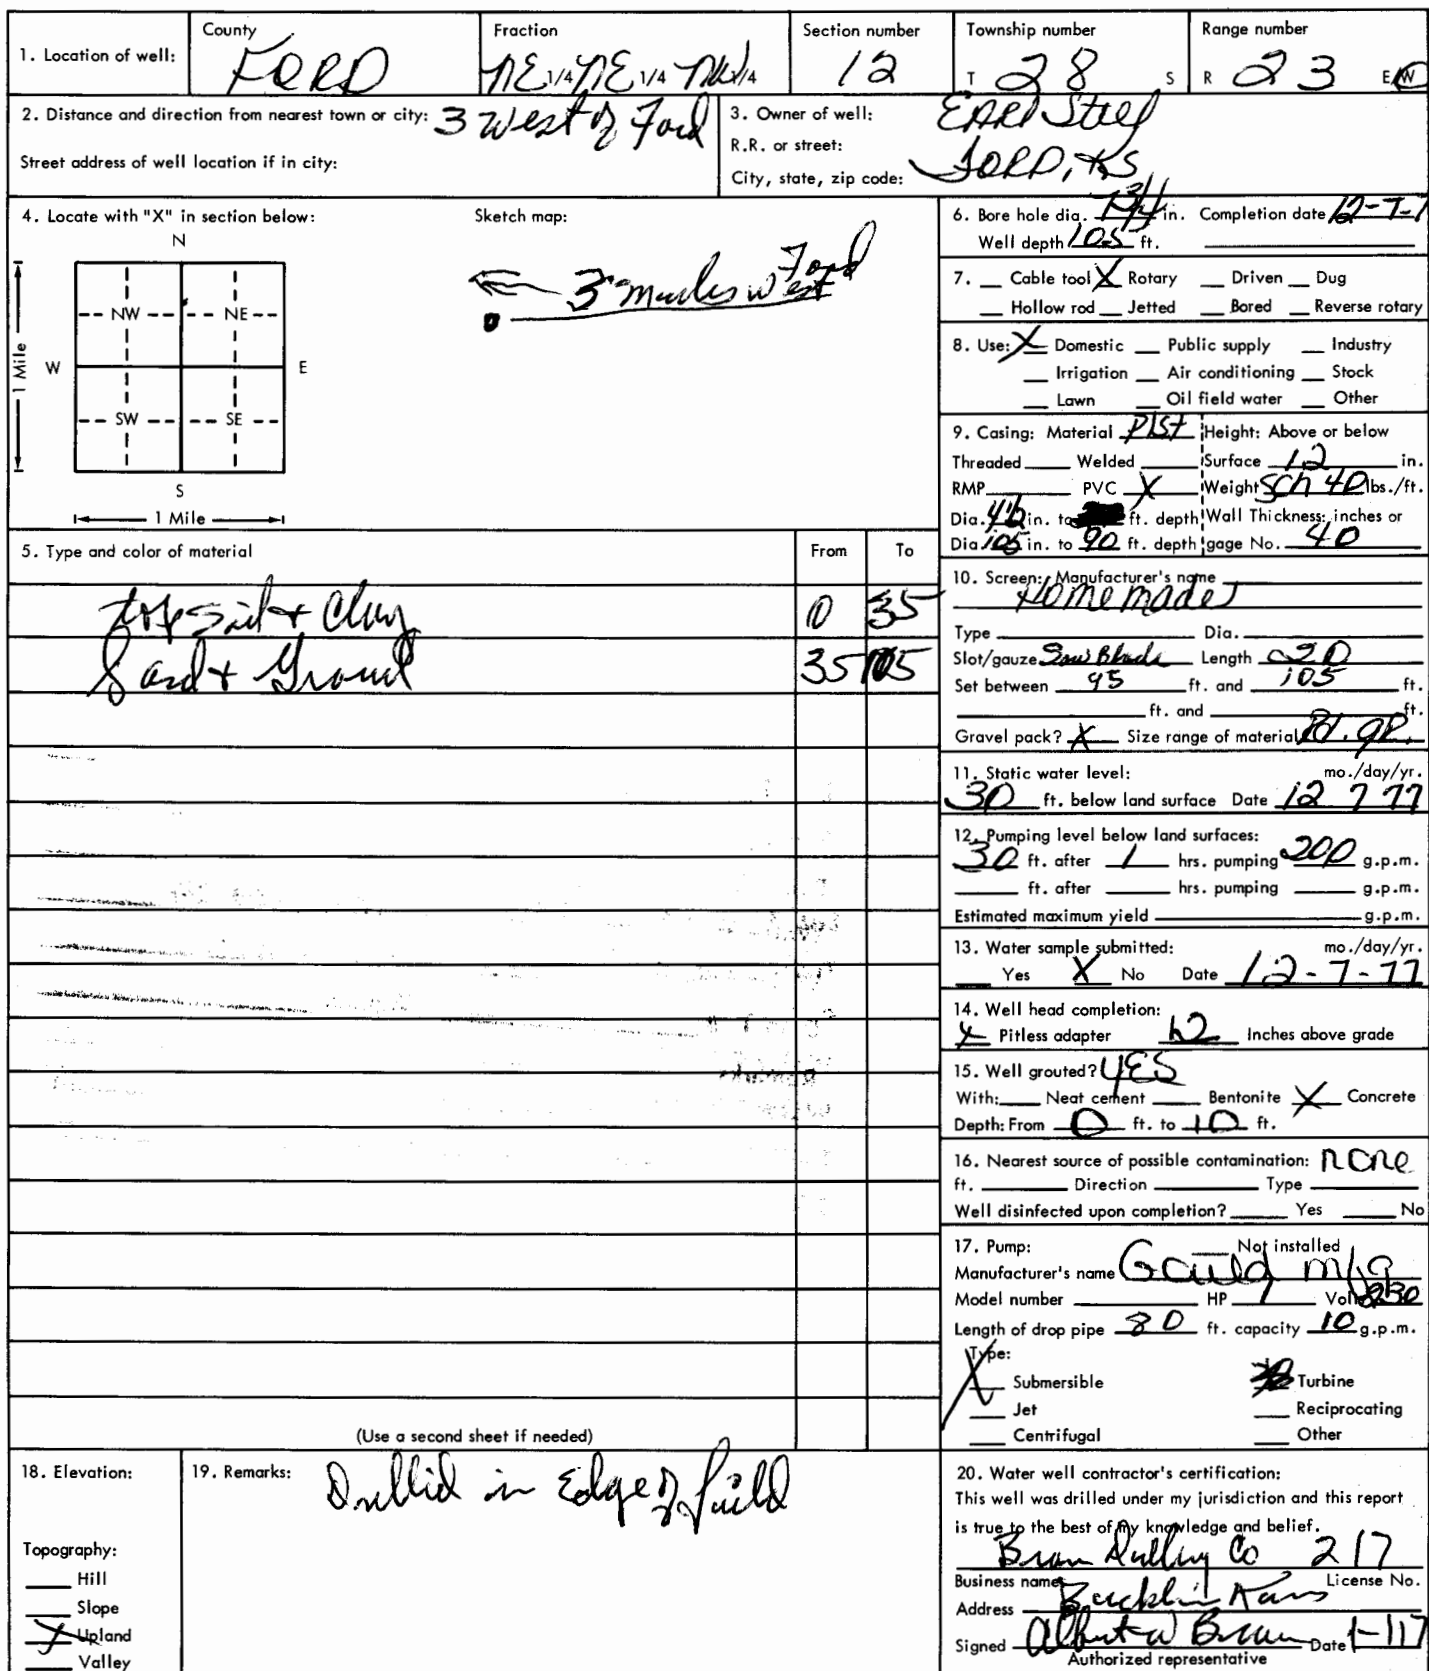 1. Location of well:
County
FORD
Fraction
NE 1/4 NE 1/4 NW 1/4
Section number
12
Township number
T 28 S
Range number
R 23 E/W
2. Distance and direction from nearest town or city: 3 West of Ford
Street address of well location if in city:
3. Owner of well: EARl
R.R. or street:
City, state, zip code: FORD, KS
4. Locate with "X" in section below:
Sketch map:
N
NW NE
W E
SW SE
S
1 Mile
1 Mile
Ford
3 miles west
5. Type and color of material From To
top soil + Clay 0 35
Sand + Gravel 35 105
(Use a second sheet if needed)
6. Bore hole dia. in. Completion date 12-7-7
Well depth 105 ft.
7. Cable tool X Rotary Driven Dug
Hollow rod Jetted Bored Reverse rotary
8. Use: X Domestic Public supply Industry
Irrigation Air conditioning Stock
Lawn Oil field water Other
9. Casing: Material PlST Height: Above or below
Threaded Welded Surface 12 in.
RMP PVC X Weight Sch 40 lbs./ft.
Dia. 4½ in. to ft. depth Wall Thickness: inches or
Dia. 105 in. to 90 ft. depth gage No. 40
10. Screen: Manufacturer's name
Homemade
Type Dia.
Slot/gauze Saw Blade Length 20
Set between 95 ft. and 105 ft.
ft. and ft.
Gravel pack? X Size range of material gR.
11. Static water level: mo./day/yr.
30 ft. below land surface Date 12 7 77
12. Pumping level below land surfaces:
30 ft. after 1 hrs. pumping 200 g.p.m.
ft. after hrs. pumping g.p.m.
Estimated maximum yield g.p.m.
13. Water sample submitted: mo./day/yr.
Yes X No Date 12-7-77
14. Well head completion:
X Pitless adapter 12 Inches above grade
15. Well grouted? YES
With: Neat cement Bentonite X Concrete
Depth: From 0 ft. to 10 ft.
16. Nearest source of possible contamination: none
ft. Direction Type
Well disinfected upon completion? Yes No
17. Pump: Not installed
Manufacturer's name Gould mfg
Model number HP 1 Volts 230
Length of drop pipe 80 ft. capacity 10 g.p.m.
Type:
X Submersible Turbine
Jet Reciprocating
Centrifugal Other
18. Elevation:
Topography:
Hill
Slope
X Upland
Valley
19. Remarks: Drillid in Edge of field
20. Water well contractor's certification:
This well was drilled under my jurisdiction and this report
is true to the best of my knowledge and belief.
Drilling Co 217
Business name License No.
Address Bucklin Kans
Signed Albert W Date 1-117
Authorized representative